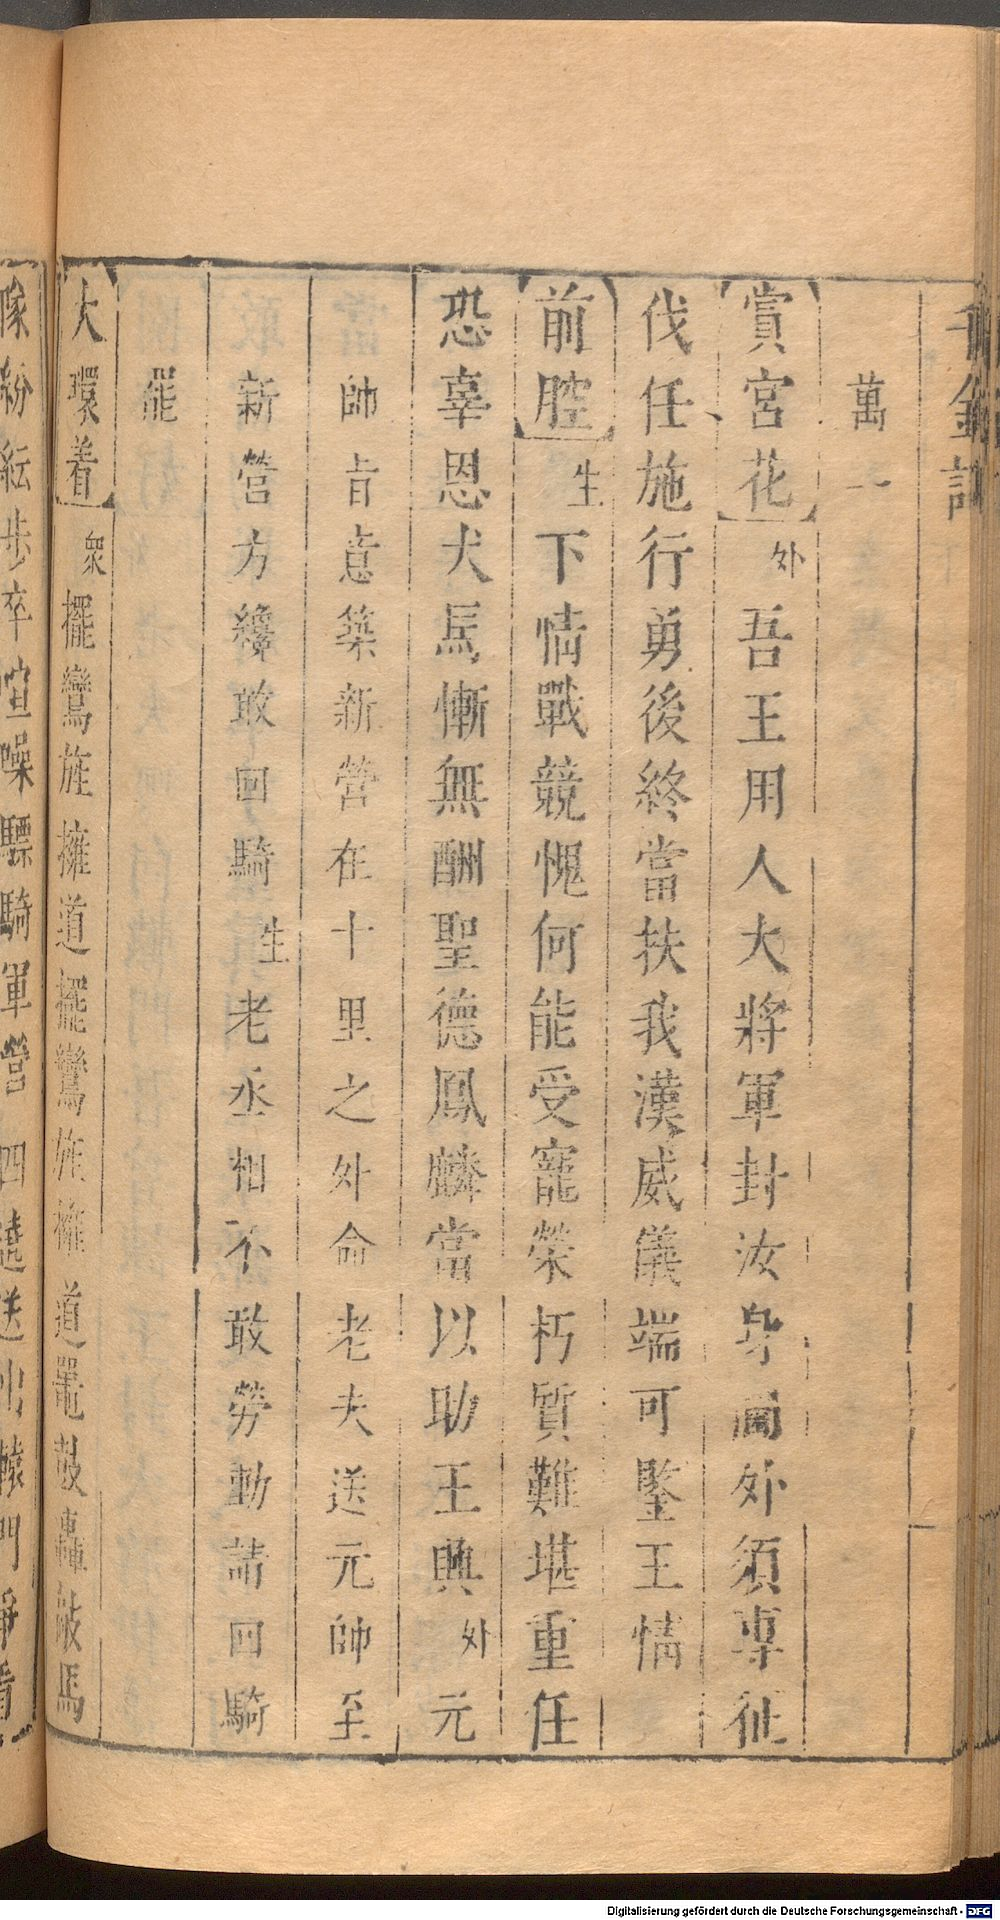 千金記
萬一
【賞宮花】外吾王用人大將軍封汝身閫外須專征
伐任施行勇後終當扶我漢威儀端可鑒王情
【前腔】生下情戰競愧何能受寵榮朽質難堪重任
恐辜恩犬馬慚無酬聖德鳳麟當以助王興外元
帥旨意築新營在十里之外命老夫送元帥至
新營方纔敢回騎生老丞相不敢勞動請回騎
罷
【大環着】衆擺鸞旌擁道擺鸞旌擁道鼍鼓轟敲馬
隊紛紜步卒喧噪驃騎軍營四遶送出轅門爭看
Digitalisierung gefördert durch die Deutsche Forschungsgemeinschaft - DFG